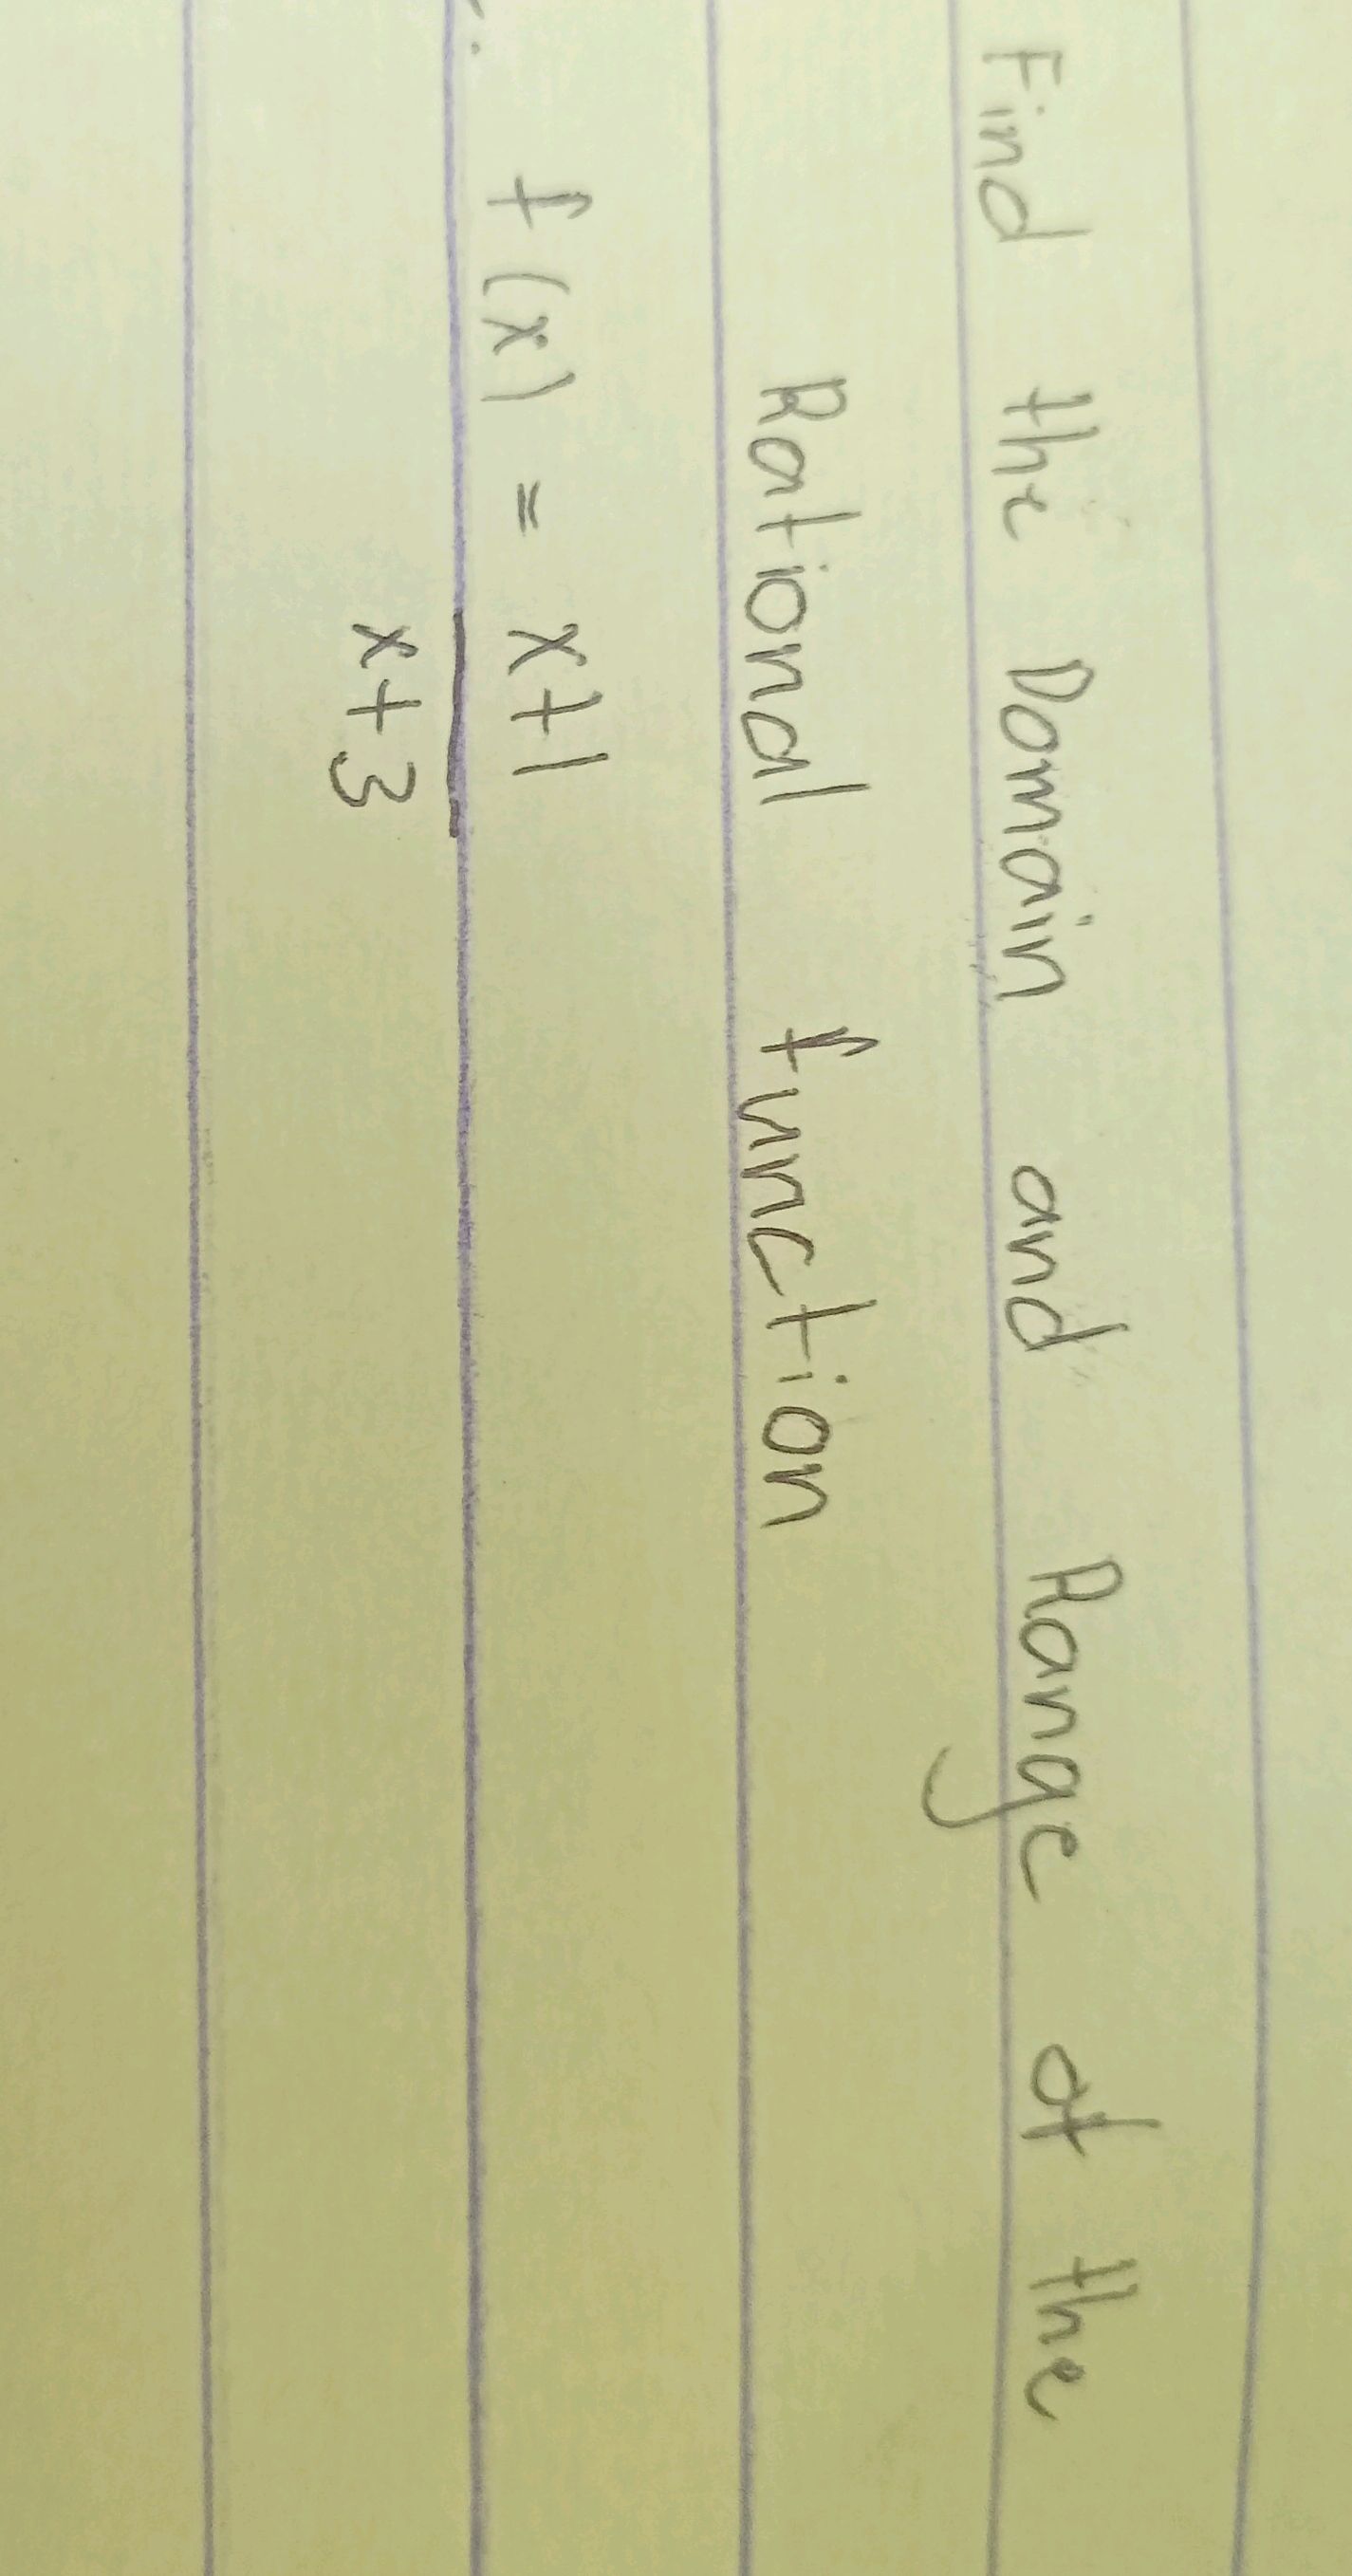 Find the Domain and Range of the
Rational function
f(x) = x+1
x+3